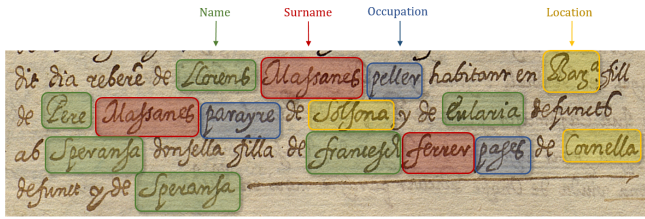 Name Surname Occupation Location
dit dia rebere de Llorens Massanes peller habitant en Barᵃ. fill
de Pere Massanes parayre de Solsona y de Eularia defuncts
ab Speransa donsella filla de francesch ferrer pages de Cornella
defunct y de Speransa